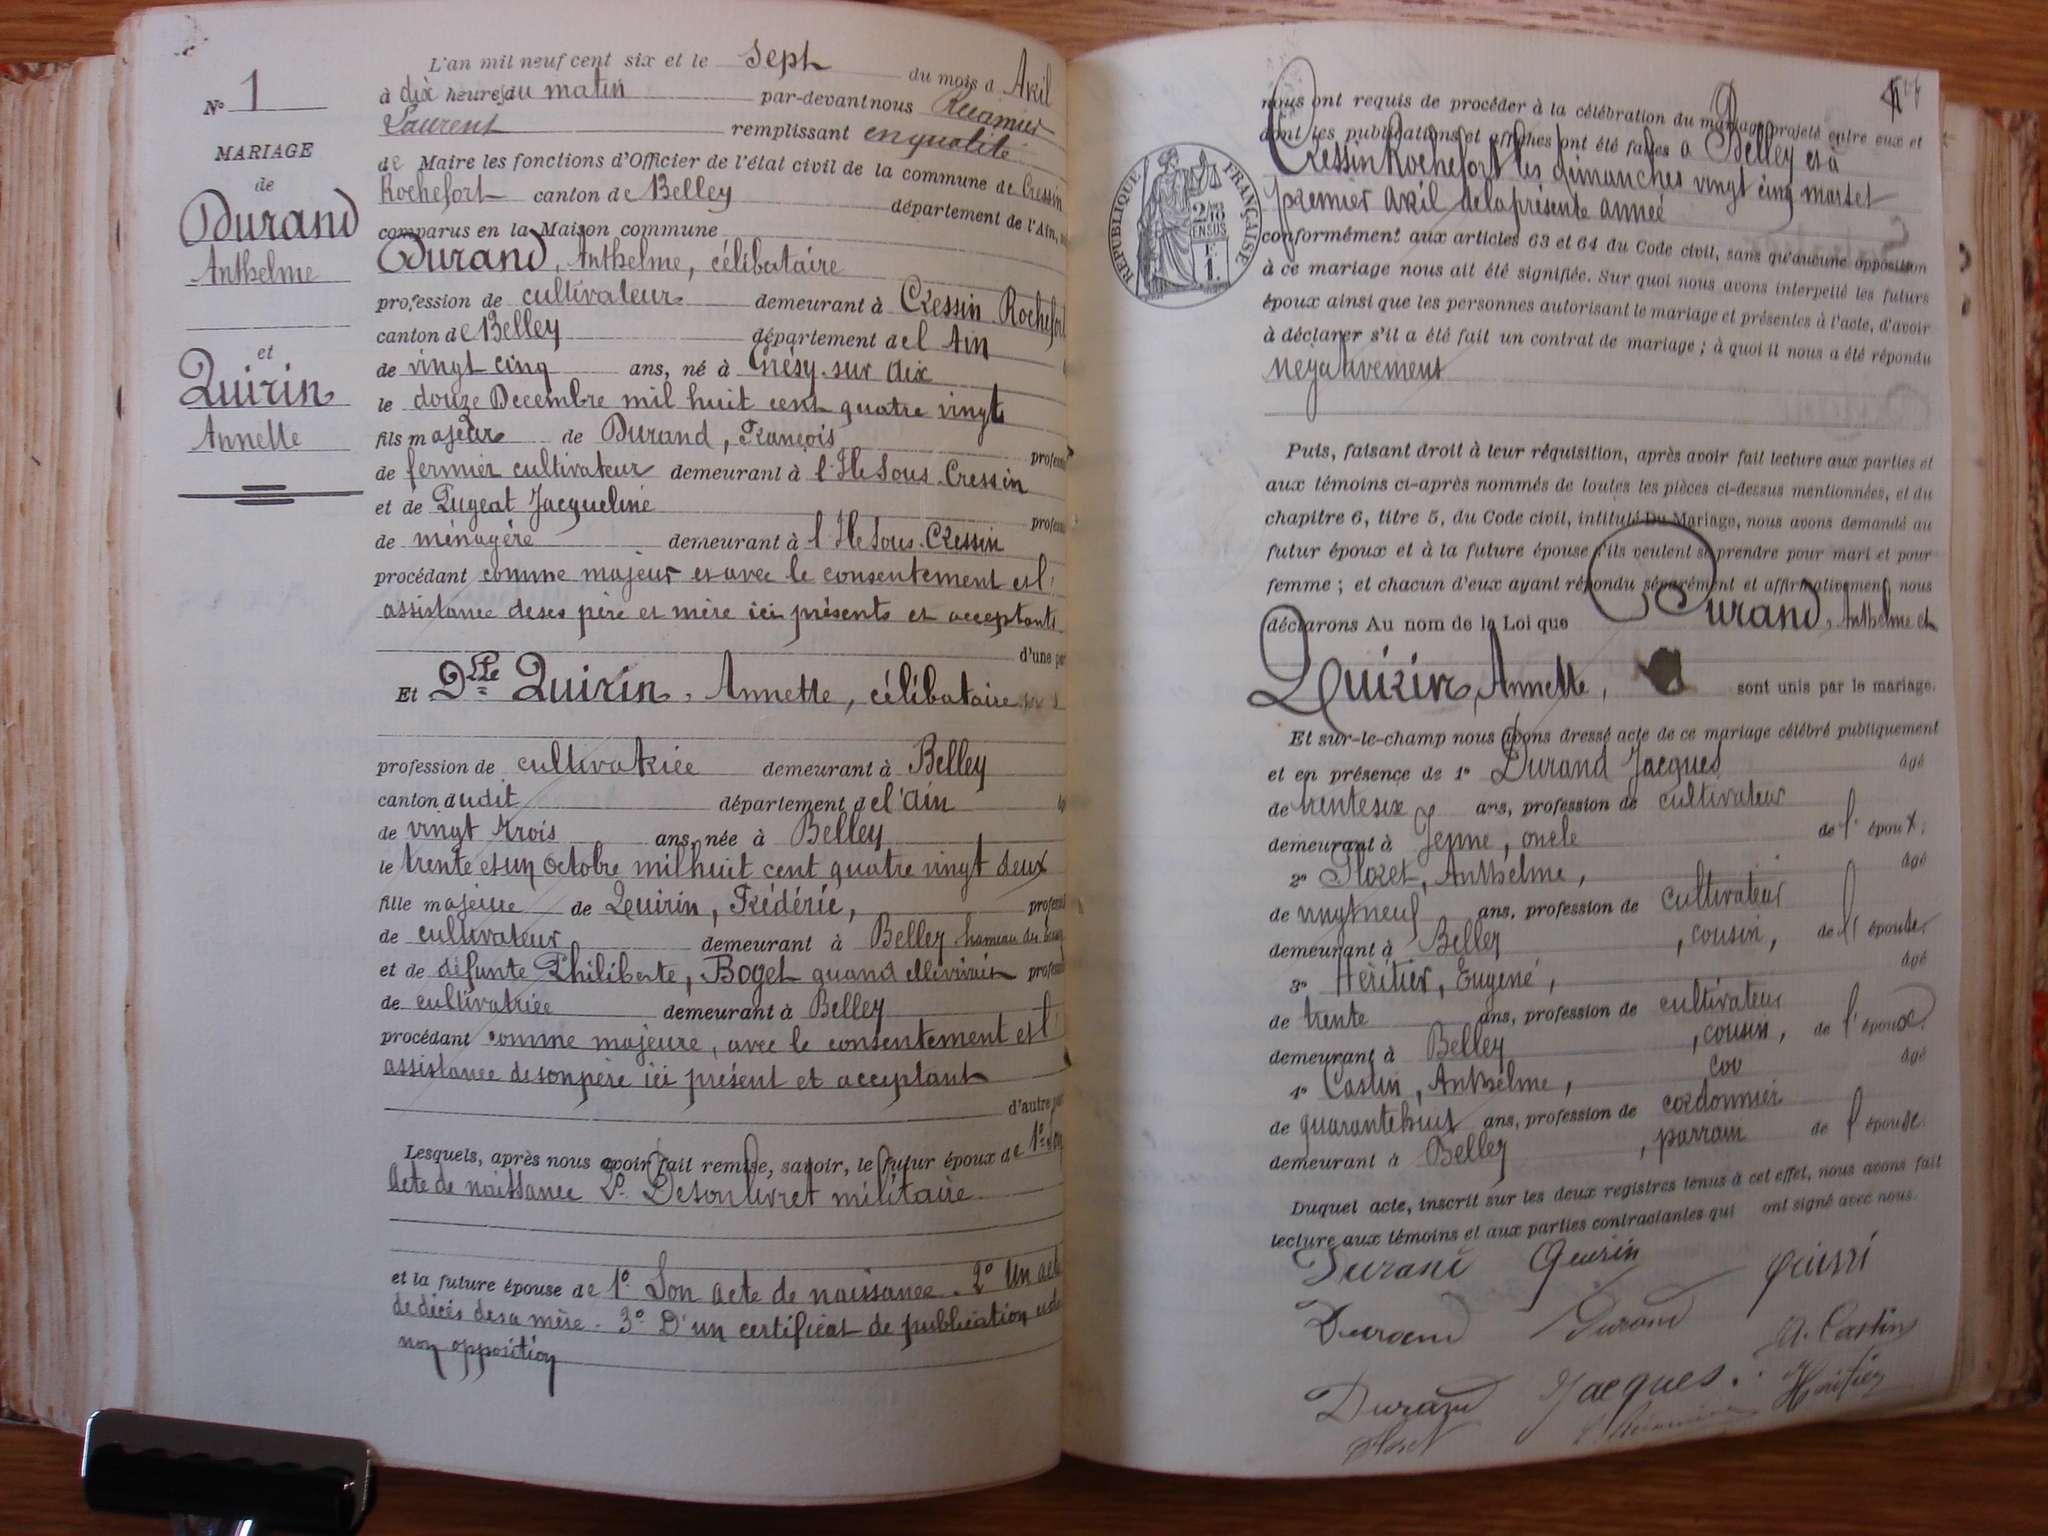 N° 1
MARIAGE
de
Durand
Anthelme
et
Quirin
Annette
L'an mil neuf cent six et le Sept du mois d Avril
à dix heures du matin par-devant nous Récamier
Laurent remplissant en qualité
de Maire les fonctions d'Officier de l'état civil de la commune de Cressin
Rochefort canton de Belley département de l'Ain,
comparus en la Maison commune
Durand, Anthelme, célibataire
profession de cultivateur demeurant à Cressin Rochefort
canton de Belley département de l'Ain
de vingt cinq ans, né à Grésy-sur-Aix
le douze Decembre mil huit cent quatre vingt
fils majeur de Durand, François professi
de fermier cultivateur demeurant à l'Ile Sous-Cressin
et de Pugeat Jacqueline professi
de ménagère demeurant à l'Ile Sous-Cressin
procédant comme majeur et avec le consentement et l'
assistance de ses père et mère ici présents et acceptants
d'une par
Et Dlle Quirin, Annette, célibataire
profession de cultivatrice demeurant à Belley
canton dudit département de l'Ain
de vingt trois ans, née à Belley
le trente et un octobre mil huit cent quatre vingt deux
fille majeure de Quirin, Frédéric, professi
de cultivateur demeurant à Belley hameau du
et de défunte Philiberte, Boget quand elle vivait professi
de cultivatrice demeurant à Belley
procédant comme majeure, avec le consentement et l'
assistance de son père ici présent et acceptant
d'autre par
Lesquels, après nous avoir fait remise, savoir, le futur époux de 1° Son
Acte de naissance 2° De son livret militaire
et la future épouse de 1° Son acte de naissance. 2° Un acte
de décès de sa mère. 3° D'un certificat de publication et de
non opposition
nous ont requis de procéder à la célébration du mariage projeté entre eux et
dont les publications et affiches ont été faites à Belley et à
Cressin Rochefort les dimanches vingt cinq mars et
premier avril de la présente année
RÉPUBLIQUE FRANÇAISE
2/10 EN SUS
1
conformément aux articles 63 et 64 du Code civil, sans qu'aucune opposition
à ce mariage nous ait été signifiée. Sur quoi nous avons interpellé les futurs
époux ainsi que les personnes autorisant le mariage et présentes à l'acte, d'avoir
à déclarer s'il a été fait un contrat de mariage ; à quoi il nous a été répondu
négativement
Puis, faisant droit à leur réquisition, après avoir fait lecture aux parties et
aux témoins ci-après nommés de toutes les pièces ci-dessus mentionnées, et du
chapitre 6, titre 5, du Code civil, intitulé Du Mariage, nous avons demandé au
futur époux et à la future épouse s'ils veulent se prendre pour mari et pour
femme ; et chacun d'eux ayant répondu séparément et affirmativement, nous
déclarons Au nom de la Loi que Durand, Anthelme et
Quirin, Annette, sont unis par le mariage.
Et sur-le-champ nous avons dressé acte de ce mariage célébré publiquement
et en présence de 1° Durand Jacques âgé
de trente six ans, profession de cultivateur
demeurant à Yenne, oncle de l'époux,
2° Floret, Anthelme, âgé
de vingt neuf ans, profession de cultivateur
demeurant à Belley, cousin, de l'épouse.
3° Héritier, Eugène, âgé
de trente ans, profession de cultivateur
demeurant à Belley, cousin, de l'épouse.
4° Castin, Anthelme, cou âgé
de quarante huit ans, profession de cordonnier
demeurant à Belley, parrain de l'épouse.
Duquel acte, inscrit sur les deux registres tenus à cet effet, nous avons fait
lecture aux témoins et aux parties contractantes qui ont signé avec nous.
Durand Quirin Quirin
Durand Durand A. Castin
Durand Jacques Héritier
Floret L. Récamier